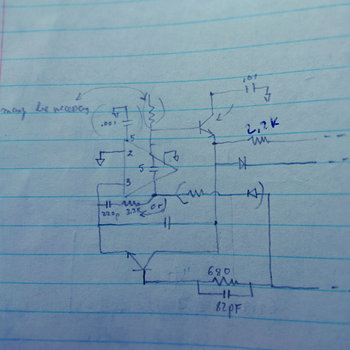 .01
.001
may be necessary
5
2.2K
2
5
3
220p
680
82pF